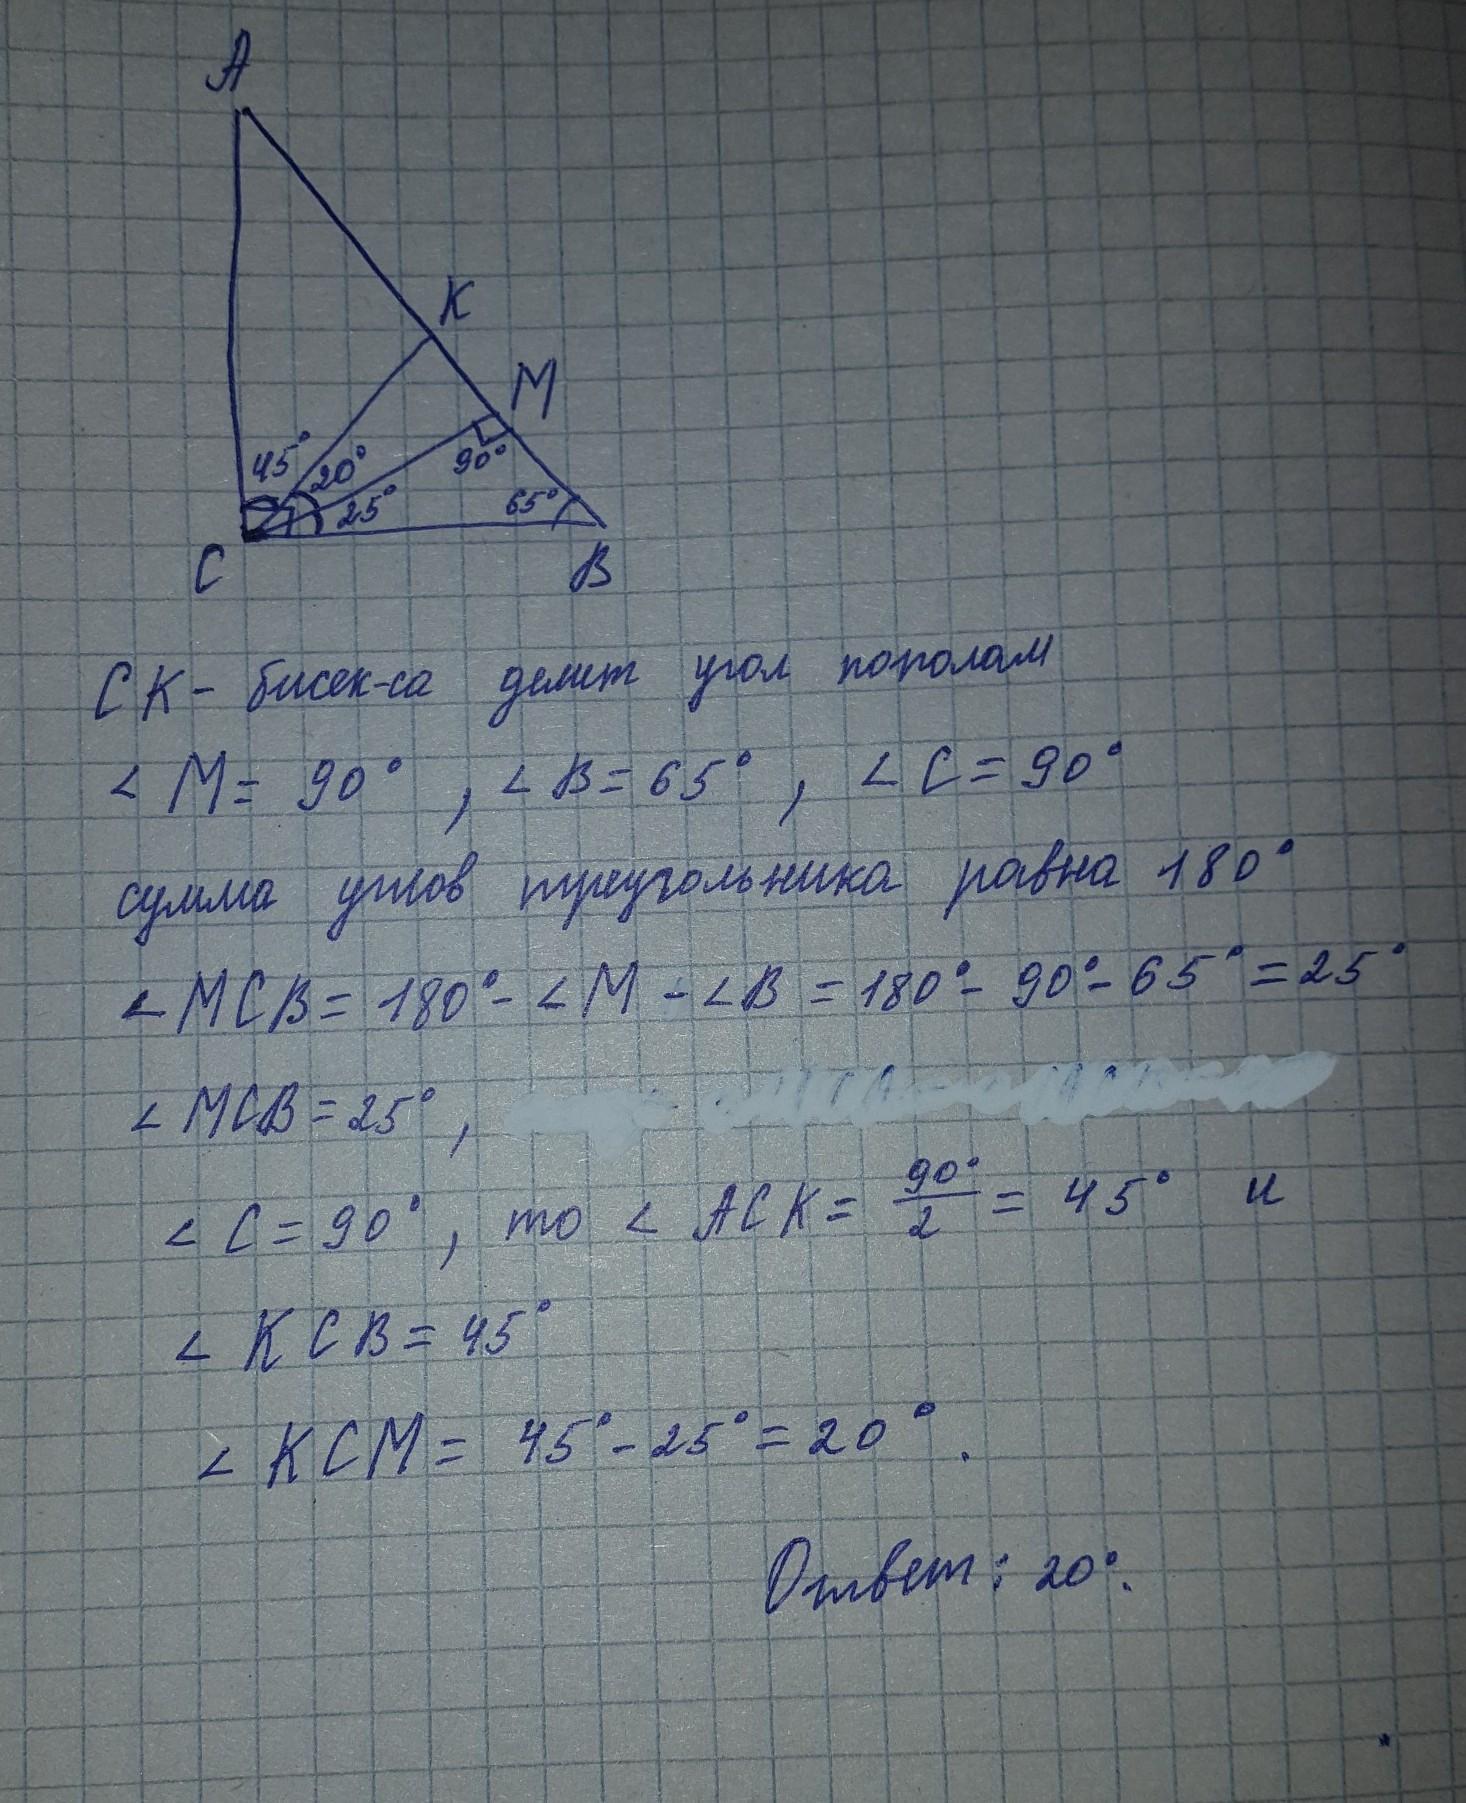 A
K
M
45° 20° 90°
25° 65°
C B
CK - бисек-са делит угол пополам
∠ M = 90° , ∠ B = 65° , ∠ C = 90°
сумма углов треугольника равна 180°
∠ MCB = 180° - ∠ M - ∠ B = 180° - 90° - 65° = 25°
∠ MCB = 25° ,
∠ C = 90° , то ∠ ACK = 90°/2 = 45° и
∠ KCB = 45°
∠ KCM = 45° - 25° = 20° .
Ответ : 20°.